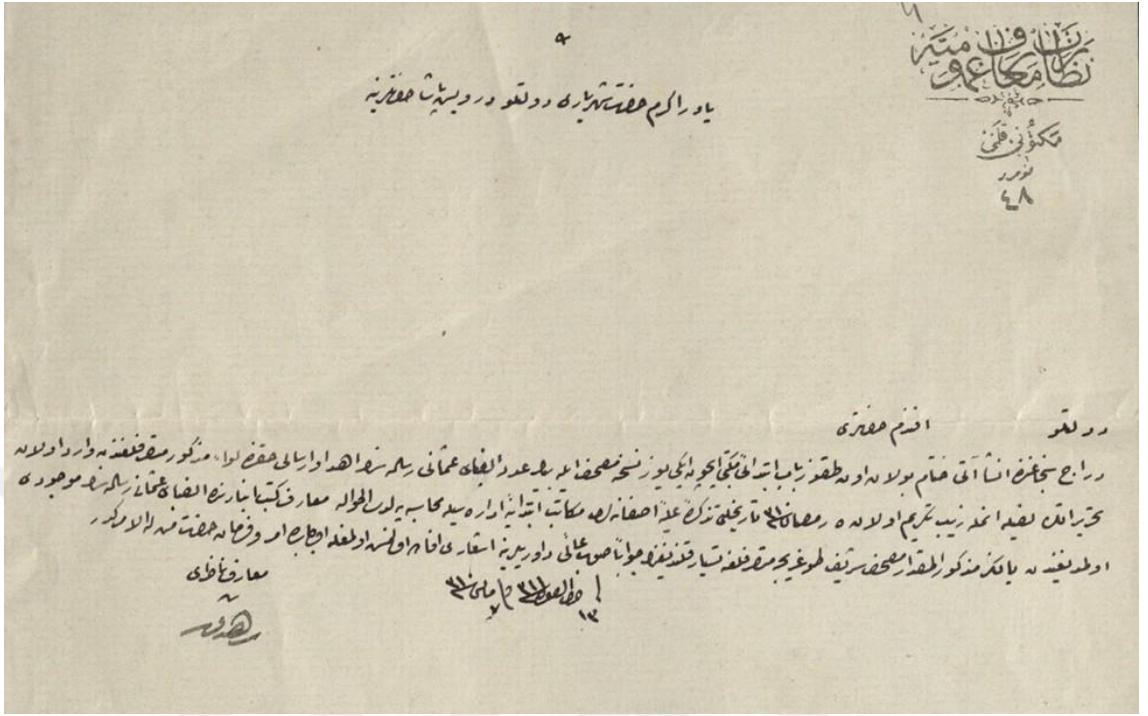 نظارت معارف عمومیه
مکتوبی قلمی
نومرو
٤٨
یاور اکرم حضرت شهریاری دولتلو درویش پاشا حضرتلرینه
دولتلو افندم حضرتلری
دراج سنجاغنده انشاآتی ختام بولان اون طقوز باب ابتدائی مکتبی ایچون ایکی یوز نسخه مصحف ایله عدد الفبای عثمانی رساله سنك اهدا و ارسالی حقنده لواء مذکور متصرفلغندن وارد اولان
تحریراتك لفیله انمله زیب تکریم اولان ٥ رمضان سنه تاریخلی تذکره علیه آصفانه لری مکاتب ابتدائیه اداره سیله محاسبه یه لدی الحواله معارف کتب انبارنده الفبای عثمانی رساله سنك موجودی
اولمدیغندن یالکز مذکور المقدار مصحف شریف طوغریجه متصرفلغه تسیار قلندیغنك جواباً صوب عالی داوریلرینه اشعاری افاده اولنمش اولمغله اولبابده امر و فرمان حضرت من له الامرکدر
١٣
معارف ناظری
زهدی